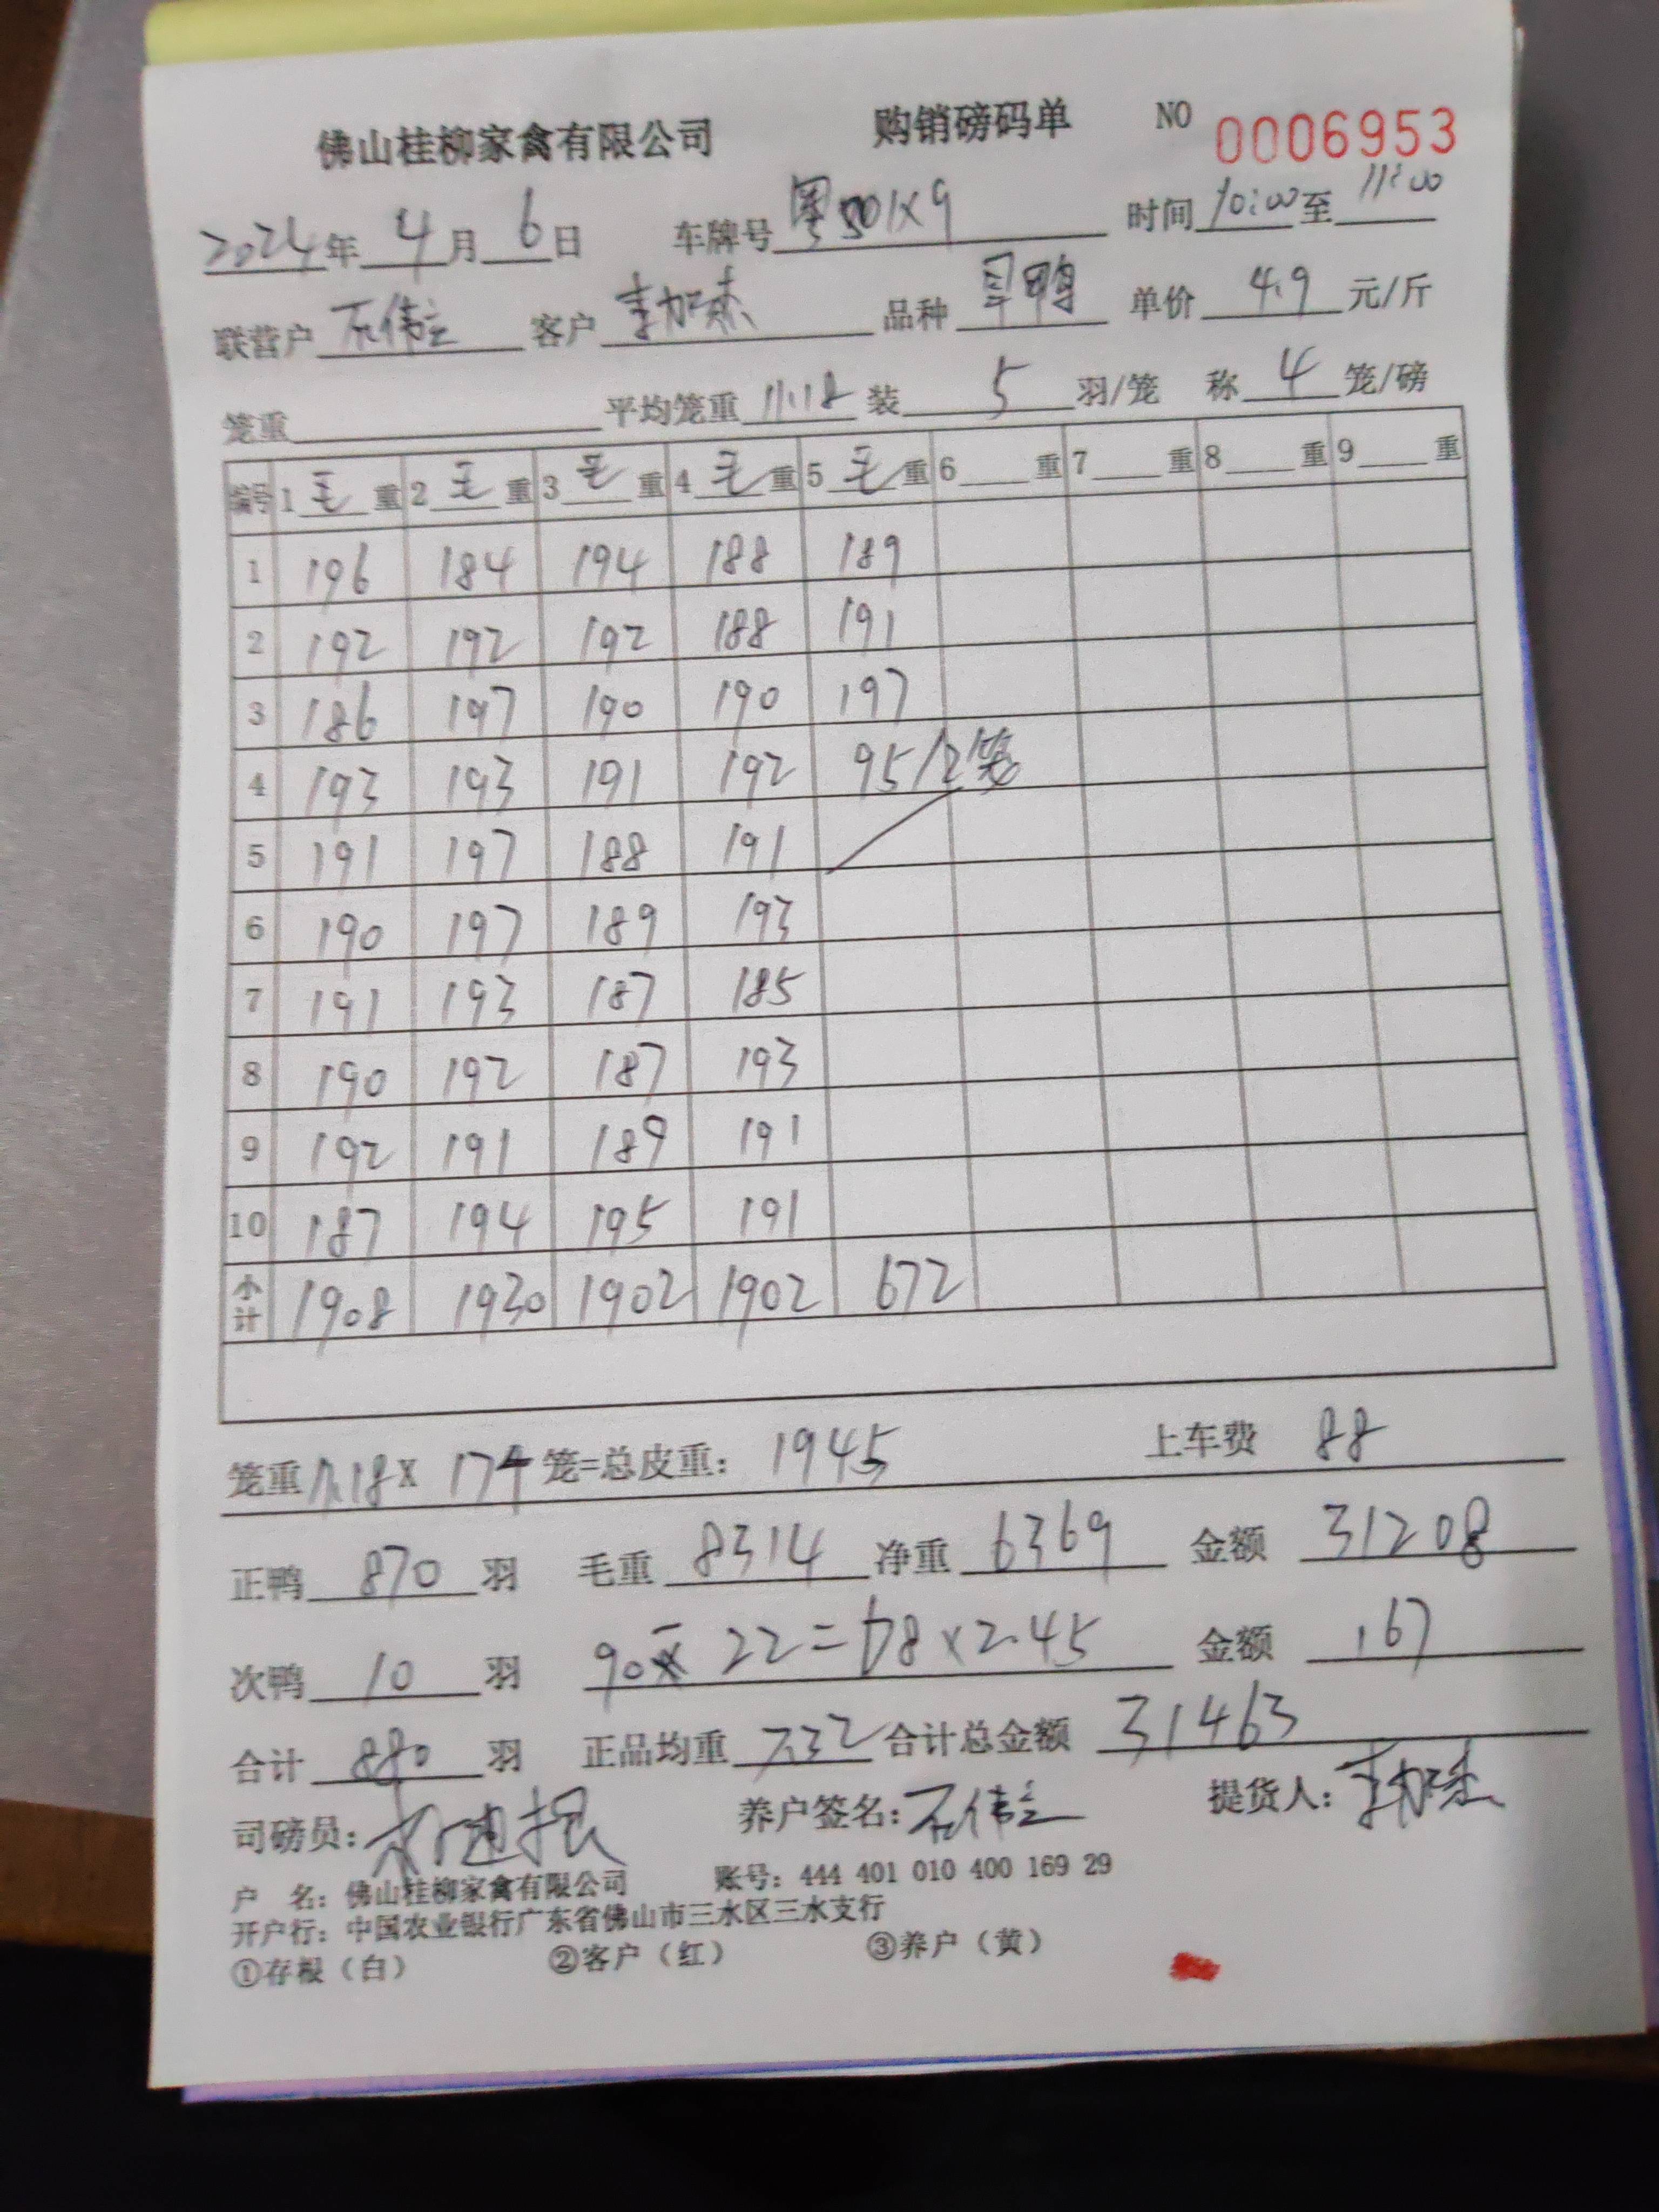 佛山桂柳家禽有限公司 购销磅码单 NO 0006953
2024年 4月 6日 车牌号 粤 01X9 时间 10:00至 11:00
联营户 石伟立 客户 李加杰 品种 鸭 单价 4.9 元/斤
笼重 平均笼重 11.18 装 5 羽/笼 称 4 笼/磅
编号 1毛重 2毛重 3毛重 4毛重 5毛重 6重 7重 8重 9重
1 196 184 194 188 189
2 192 192 192 188 191
3 186 197 190 190 197
4 193 193 191 192 95/2笼
5 191 197 188 191
6 190 197 189 193
7 191 193 187 185
8 190 192 187 193
9 192 191 189 191
10 187 194 195 191
小计 1908 1930 1902 1902 672
笼重 11.18 X 174 笼=总皮重: 1945 上车费 88
正鸭 870 羽 毛重 8314 净重 6369 金额 31208
次鸭 10 羽 90 - 22 = 68 x 2.45 金额 167
合计 880 羽 正品均重 7.32 合计总金额 31463
司磅员: 养户签名: 石伟立 提货人: 李加杰
户 名: 佛山桂柳家禽有限公司 账号: 444 401 010 400 169 29
开户行: 中国农业银行广东省佛山市三水区三水支行
①存根（白） ②客户（红） ③养户（黄）